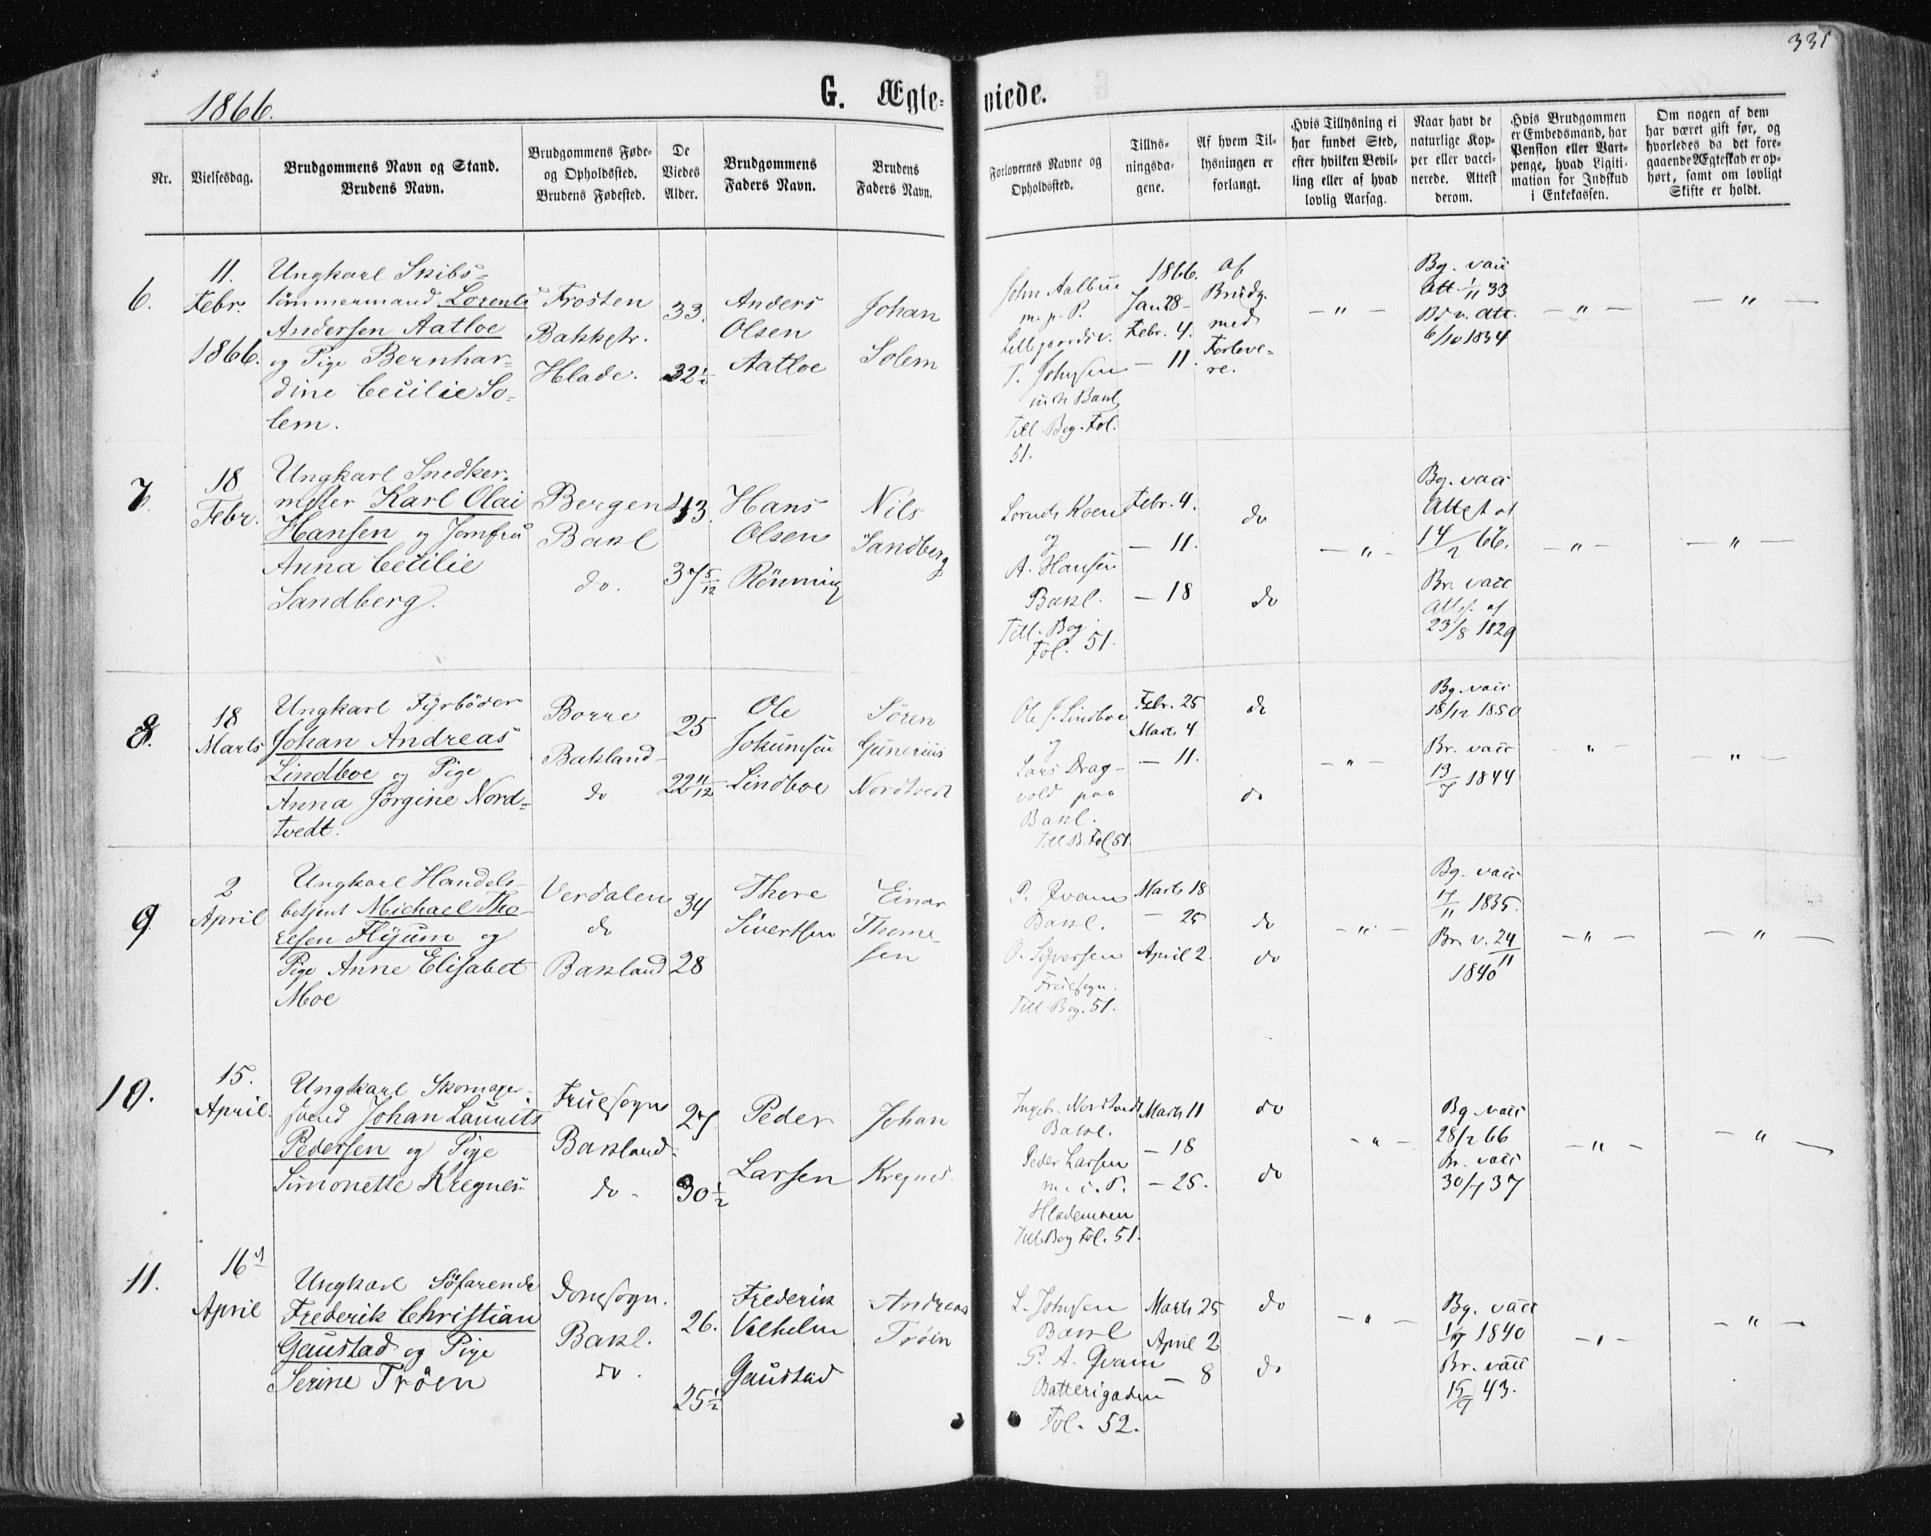 331
1866.
G. Ægte-viede.
Nr.
Vielsesdag.
Brudgommens Navn og Stand.
Brudens Navn.
Brudgommens Føde-
og Opholdssted.
Brudens Fødested.
De
Viedes
Alder.
Brudgommens
Faders Navn.
Brudens
Faders Navn.
Forlovernes Navne og
Opholdssted.
Tillys-
ningsda-
gene.
Af hvem Til-
lysningen er
forlangt.
Hvis Tillysning ei
har fundet Sted,
efter hvilken Bevil-
ling eller af hvad
lovlig Aarsag.
Naar havt de
naturlige Kop-
per eller vacci-
nerede. Attest
derom.
Hvis Brudgommen
er Embedsmand, har
Pension eller Vart-
penge, hvad Ligiti-
mation for Indskud
i Enkekassen.
Om nogen af dem
har været gift før, og
hvorledes da det fore-
gaaende Ægteskab er op-
hørt, samt om lovligt
Skifte er holdt.
6.
11.
Febr.
1866.
Ungkarl Skibs-
tømmermand Lorents
Andersen Aatloe
og Pige Bernhar-
dine Cecilie So-
lem.
Frosten
Bakkestr.
Hlade.
33.
32½
Anders
Olsen
Aatloe
Johan
Solem
John Aalbue
m. p. P.
T. Johnsen
Till. Bog. Fol.
51.
1866.
Jan 28 -
Febr. 4.
— 11.
af
Brudg.
med
Forlove-
re.
— " —
Bg. vacc
Att. 1/11 33
Br v. att.
6/10 1834
— " —
— " —
7.
18
Febr.
Ungkarl Snedker-
mester Karl Olai
Hansen og Jomfru
Anna Cecilie
Sandberg.
Bergen
Bakl
do.
43.
37 5/12
Hans
Olsen
Rönning
Nils
Sandberg
og
A. Hansen
Bakl.
Till. Bog.
Fol. 51.
Febr. 4.
— 11.
— 18
do
do
— " —
Bg. vacc
Attest af
14/2 66.
Br. vacc
Att. af
23/8 1829
— " —
— " —
8.
18
Marts
Ungkarl Fyrböder
Johan Andreas
Lindboe og Pige
Anna Jörgine Nord-
tvedt.
Borre
Bakland
do
25
22 11/12
Ole
Jokumsen
Lindboe
Sören
Gunerius
Nordtvedt
Ole J. Lindboe
og
Lars Drag-
vold paa
Bakl.
Till B. Fol 51.
Febr. 25
Marts 4
— 11.
do
do
— " —
Bg. vacc
18/12 1850
Br. vacc
13/7 1844
— " —
— " —
9.
2
April
Ungkarl Handels-
betjent Michael Tho-
resen Flyum og
Pige Anne Elisabet
Moe
Verdalen
do
Bakland
34
28
Thore
Sivertsen
Einar
Thome-
sen
P. Qvam
Bakl.
O. Syversen
Fruesogn.
Till. Bog. 51.
Marts 18
— 25
April 2.
do
do
— " —
Bg. vacc
1835.
Br. v. 24/11
1840
— " —
— " —
10.
15.
April.
Ungkarl Skomager-
svend Johan Laurits
Pedersen og Pige
Simonette Kregnes.
Fruesogn
Bakland.
do.
27
30½
Peder
Larsen
Johan
Kregnes.
Ingebr. Nordtvedt
Bakl.
Peder Larsen
m. i. P.
Hlademoen
Till. Bog Fol. 51.
Marts 11
— 18
— 25.
do
do
— " —
Bg. vacc
28/2 66
Br. vacc
30/7 37
— " —
— " —
11.
16d
April
Ungkarl Söfarende
Frederik Christian
Gaustad og Pige
Serine Tröen
Domsogn.
Bakl.
do.
26.
25½
Frederik
Vilhelm
Gaustad
Andreas
Tröen
L. Johnsen
Bakl
P. A. Qvam
Batterigaden
Fol. 52.
Marts 25
April 2
— 8
do
do
— " —
Bg. vacc
1840
Br. vacc
15/7 43.
— " —
— " —